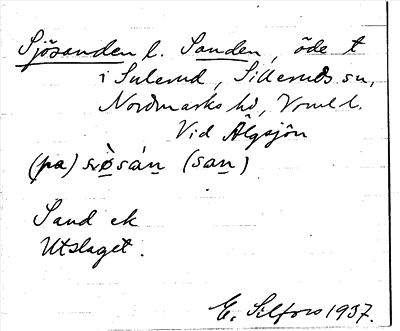 Sjösanden l. Sanden, öde t
i Sulerud, Silleruds sn,
Nordmarks hd, Vrml l.
Vid Älgsjön
(pa) sɷ̀sán (san)
Sand ek
Utslaget.
E. Silfors 1937.